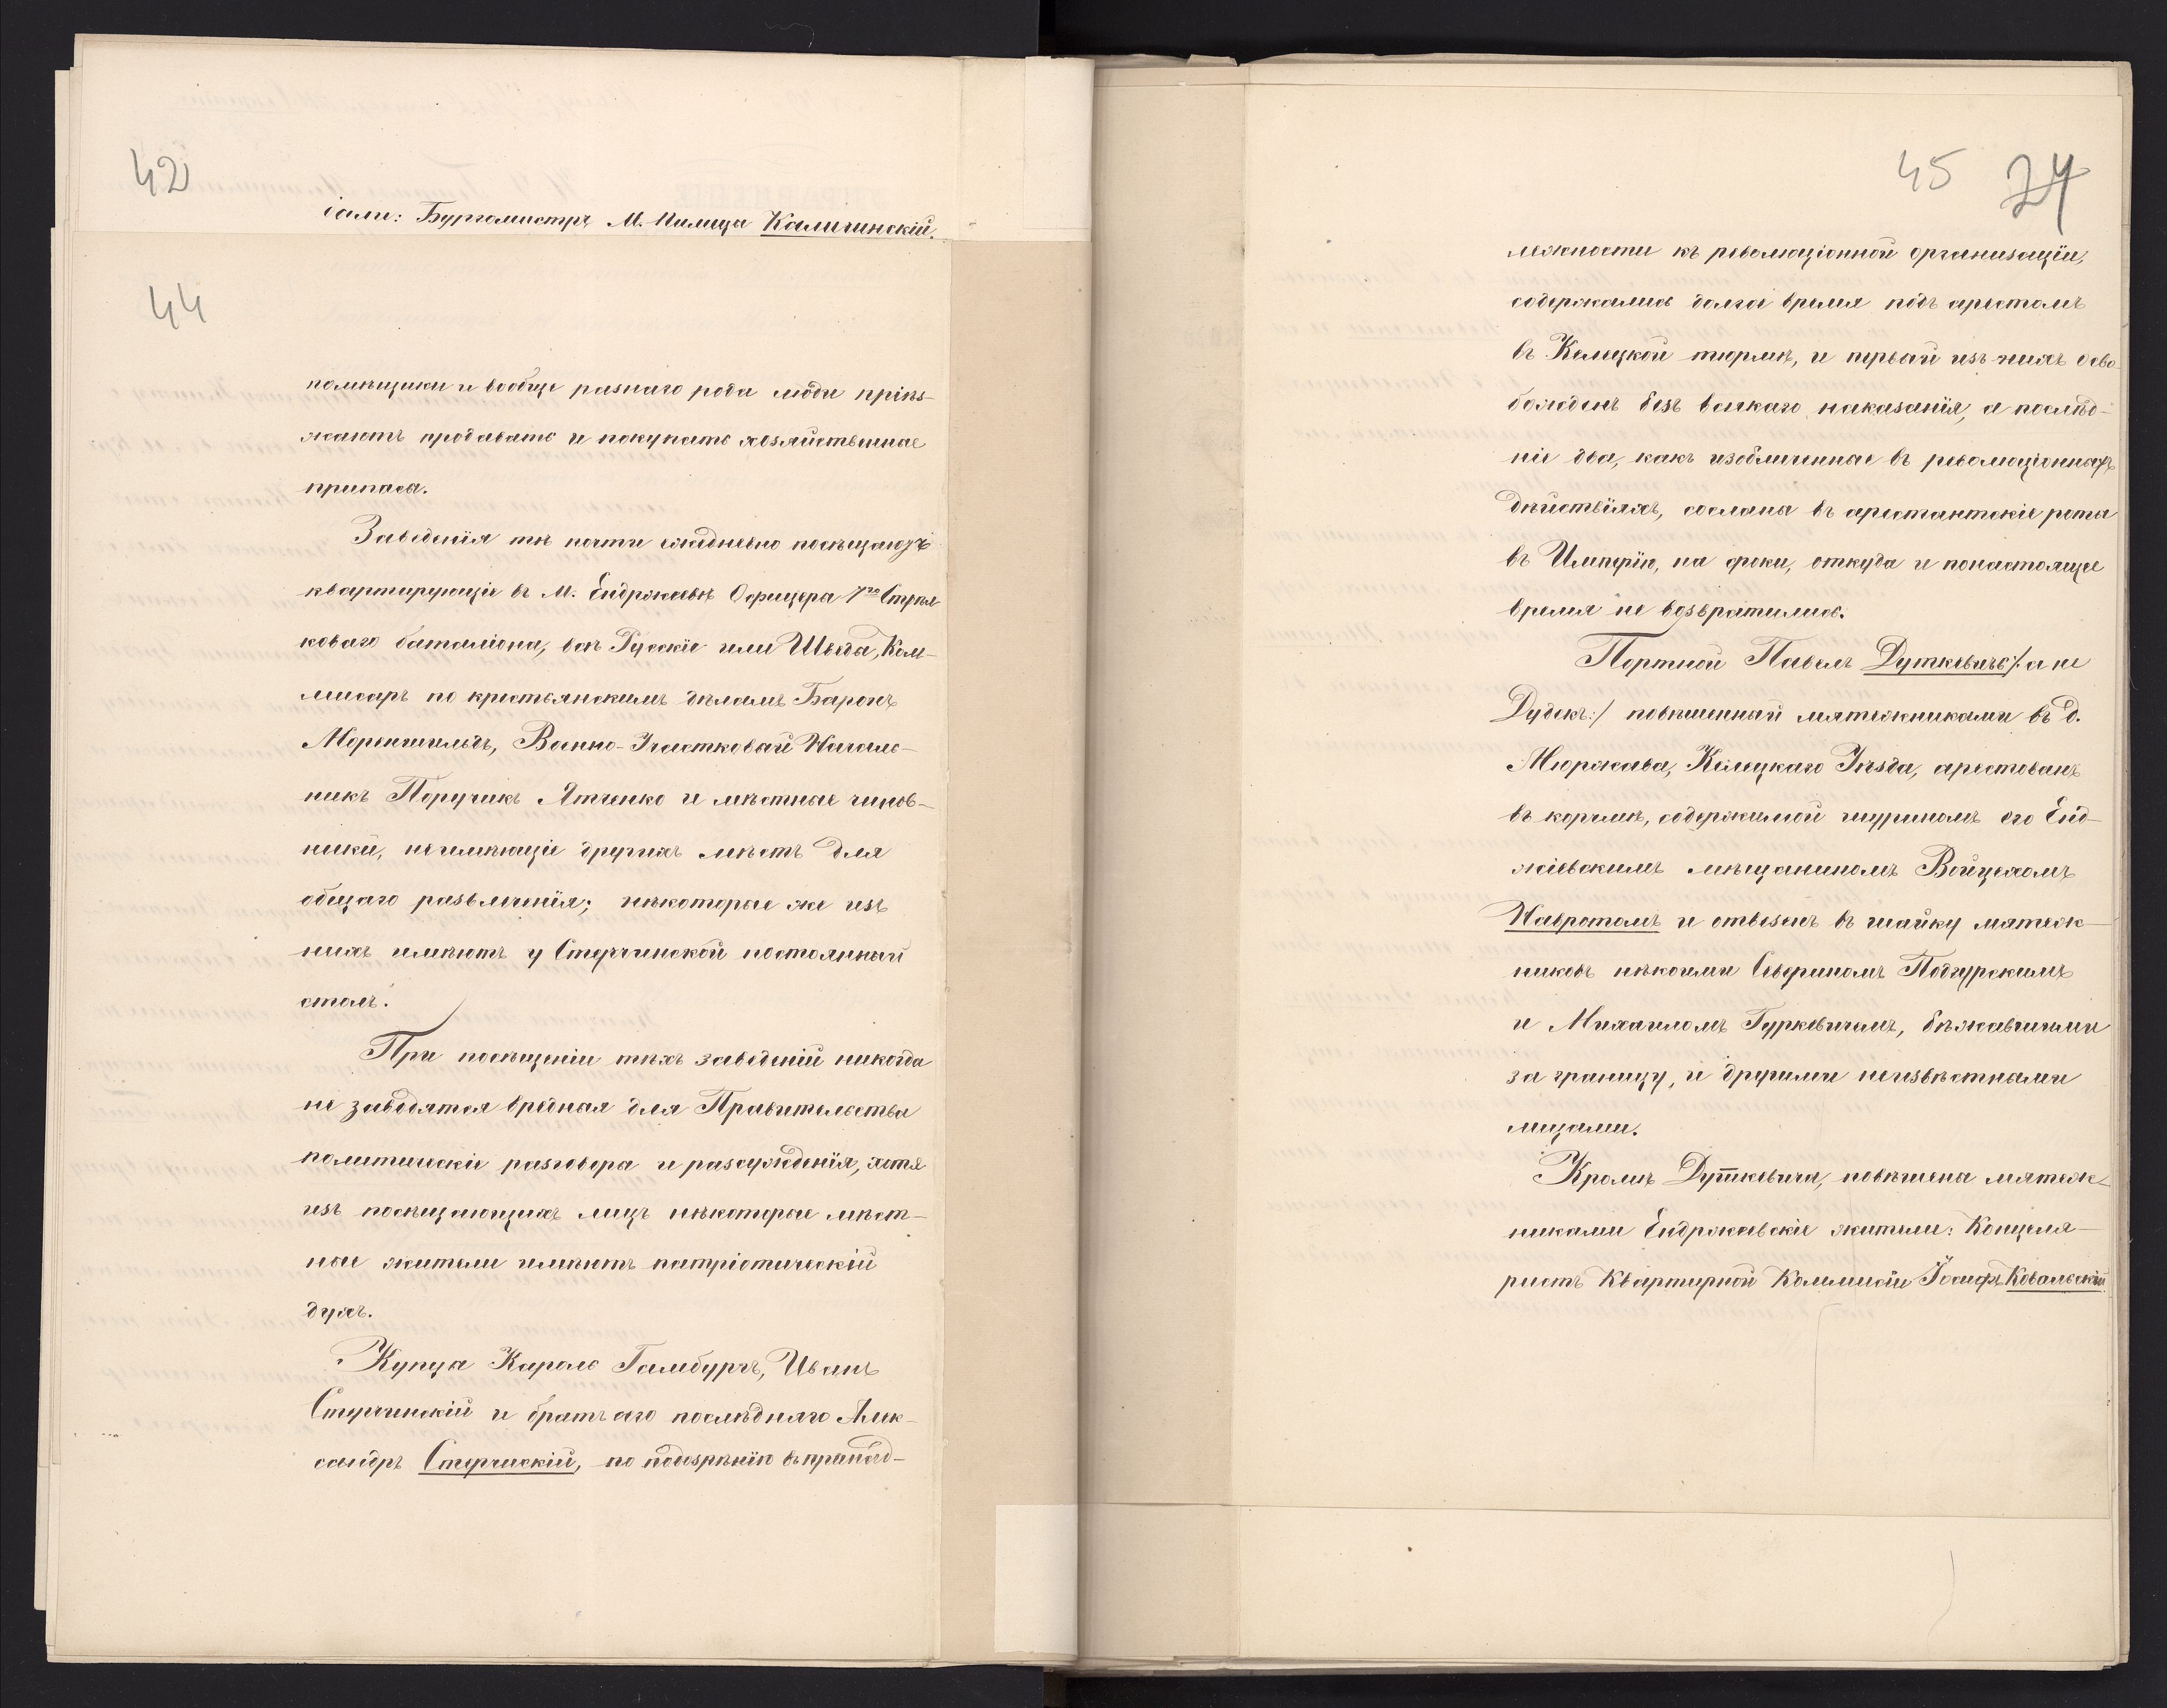 42
іали: Бургомистръ М. Пилица Каличинскій.
44
помѣщики и вообще разнаго рода люди пріѣз-
жаютъ продавать и покупать хозяйственные
припасы.
Заведенія тѣ почти ежедневно посѣщаютъ
квартирующіе въ М. Енджеевѣ Офицеры 7го Стрѣл
коваго баталіона, всѣ Русскіе или Шведы, Ком-
мисаръ по крестьянскимъ дѣламъ Баронъ
Моренгильдъ, Военно-Участковый Началь-
никъ Поручикъ Ятченко и мѣстные чинов-
ники, неимѣющіе другихъ мѣстъ для
общаго развлеченія; нѣкоторые же изъ
нихъ имѣютъ у Стерчинской постоянный
столъ.
При посѣщеніи тѣхъ заведеній никогда
не заводятся вредныя для Правительства
политическіе разговоры и разсужденія, хотя
изъ посѣщающихъ лицъ нѣкоторые мѣст-
ные жители имѣютъ патріотическій
духъ.
Купцы Кароль Гамбургъ, Иванъ
Стерчинскій и братъ его послѣдняго Алек-
сандръ Стерчискій, по подозрѣнію въ принад-
45 24
лежности къ революціонной организаціи,
содержались долгое время подъ арестомъ
въ Келецкой тюрьмѣ, и первый изъ нихъ осво
божденъ безъ всякаго наказанія, а послѣд-
ніе два, какъ изобличенные въ революціонныхъ
дѣйствіяхъ, сосланы въ арестантскіе роты
въ Имперію, на сроки, откуда и понастоящее
время не возвратились.
Портной Павелъ Дуткевичъ /: а не
Дудекъ :/ повѣшенный мятежниками въ д.
Мюржава, Келецкаго Уѣзда, арестованъ
въ корчмѣ, содержимой шуриномъ его Енд-
жіевскимъ мѣщаниномъ Войцехомъ
Навротомъ и отвезенъ въ шайку мятеж-
никовъ нѣкоими Севериномъ Подгурскимъ
и Михаиломъ Гуркевичемъ, бѣжавшими
за границу, и другими неизвѣстными
лицами.
Кромѣ Дуткевича, повѣшены мятеж-
никами Енджеевскіе жители: Канцеля-
ристъ Квартирной Коммисіи Іосифъ Ковальскій